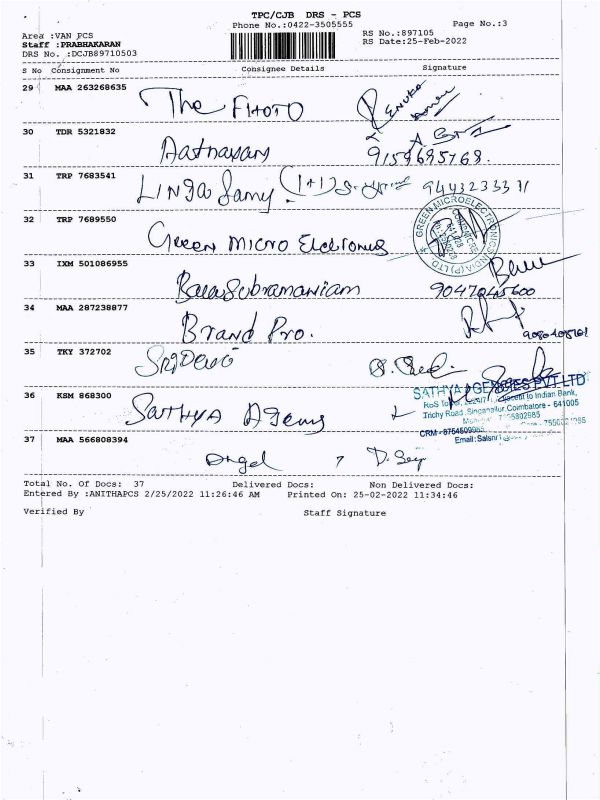 TPC/CJB DRS - PCS
Phone No.:0422-3505555 Page No.:3
Area :VAN PCS RS No.:897105
Staff :PRABHAKARAN RS Date:25-Feb-2022
DRS No. :DCJB89710503
S No Consignment No Consignee Details Signature
29 MAA 263268635 The FHOTO RENUKA
30 TDR 5321832 9159695768.
31 TRP 7683541 LINga Samy. (1+1) 9443233371
32 TRP 7689550 Green MICRO GREEN MICROELECTRONICS INDIA (P) LTD.
33 IXM 501086955 BalaSubramaniam 9047045600
34 MAA 287238877 Brand Pro.
35 TKY 372702 SRIDEVI
36 KSM 868300 SATHYA Agency
SATHYA AGENCIES PVT LTD
to Indian Bank,
Trichy Road, Singanallur, Coimbatore - 641005
37 MAA 566808394 Angel
Total No. Of Docs: 37 Delivered Docs: Non Delivered Docs:
Entered By :ANITHAPCS 2/25/2022 11:26:46 AM Printed On: 25-02-2022 11:34:46
Verified By Staff Signature